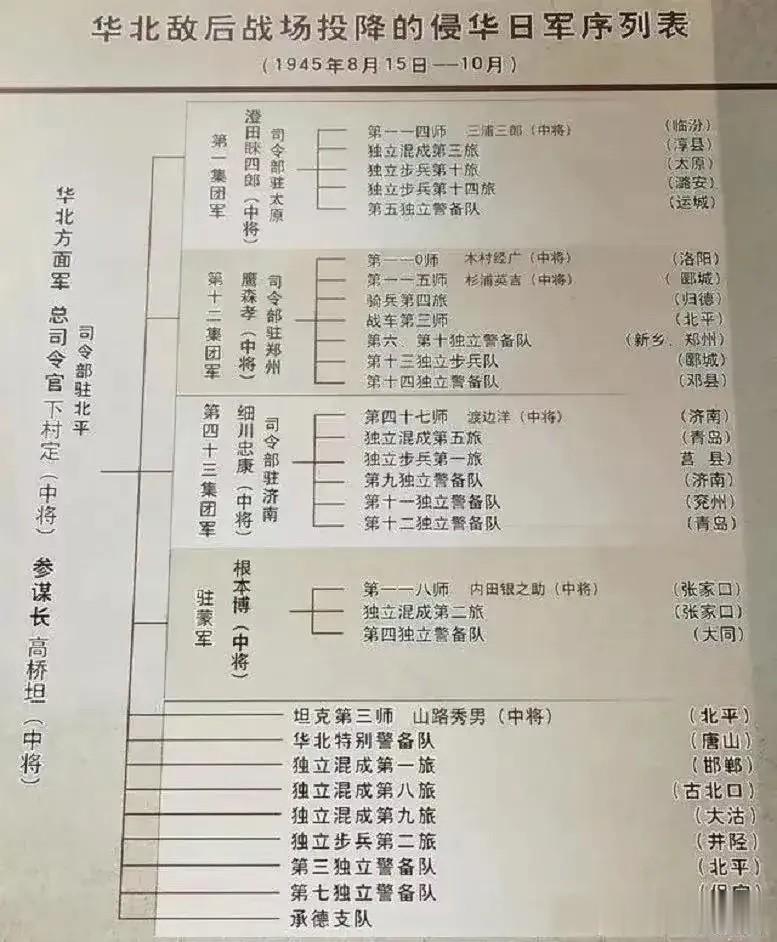 华北敌后战场投降的侵华日军序列表
(1945年8月15日——10月)
华北方面军 总司令官 下村定(中将) 参谋长 高桥坦(中将)
司令部驻北平
第一集团军
澄田睐四郎(中将)
司令部驻太原
第一一四师 三浦三郎(中将) (临汾)
独立混成第三旅 (淳县)
独立步兵第十旅 (太原)
独立步兵第十四旅 (潞安)
第五独立警备队 (运城)
第十二集团军
鹰森孝(中将)
司令部驻郑州
第一一0师 木村经广(中将) (洛阳)
第一一五师 杉浦英吉(中将) (郾城)
骑兵第四旅 (归德)
战车第三师 (北平)
第六、第十独立警备队 (新乡、郑州)
第十三独立步兵队 (郾城)
第十四独立警备队 (邓县)
第四十三集团军
细川忠康(中将)
司令部驻济南
第四十七师 渡边洋(中将) (济南)
独立混成第五旅 (青岛)
独立步兵第一旅 莒县)
第九独立警备队 (济南)
第十一独立警备队 (兖州)
第十二独立警备队 (青岛)
驻蒙军
根本博(中将)
第一一八师 内田银之助(中将) (张家口)
独立混成第二旅 (张家口)
第四独立警备队 (大同)
坦克第三师 山路秀男(中将) (北平)
华北特别警备队 (唐山)
独立混成第一旅 (邯郸)
独立混成第八旅 (古北口)
独立混成第九旅 (大沽)
独立步兵第二旅 (井陉)
第三独立警备队 (北平)
第七独立警备队
承德支队